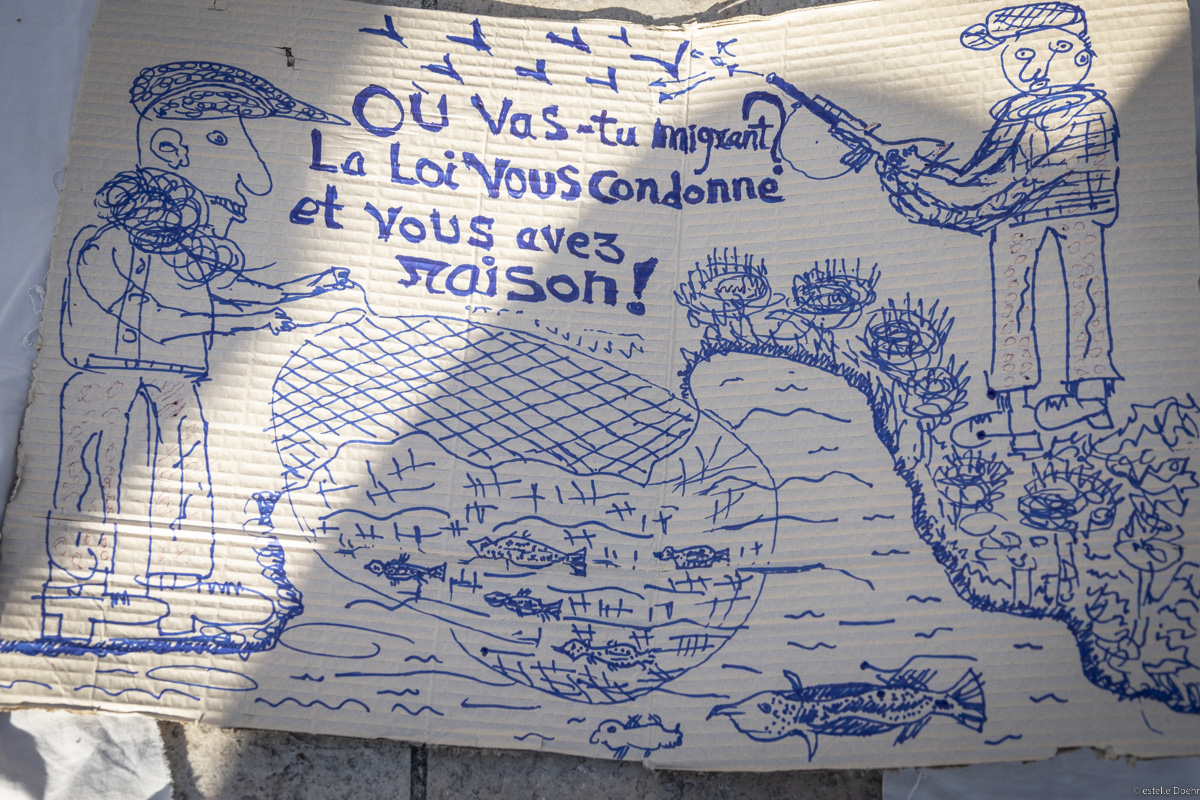 OÙ Vas-tu migrant?
La Loi Vous Condonne
et vous avez
raison!
© estelle Doehr